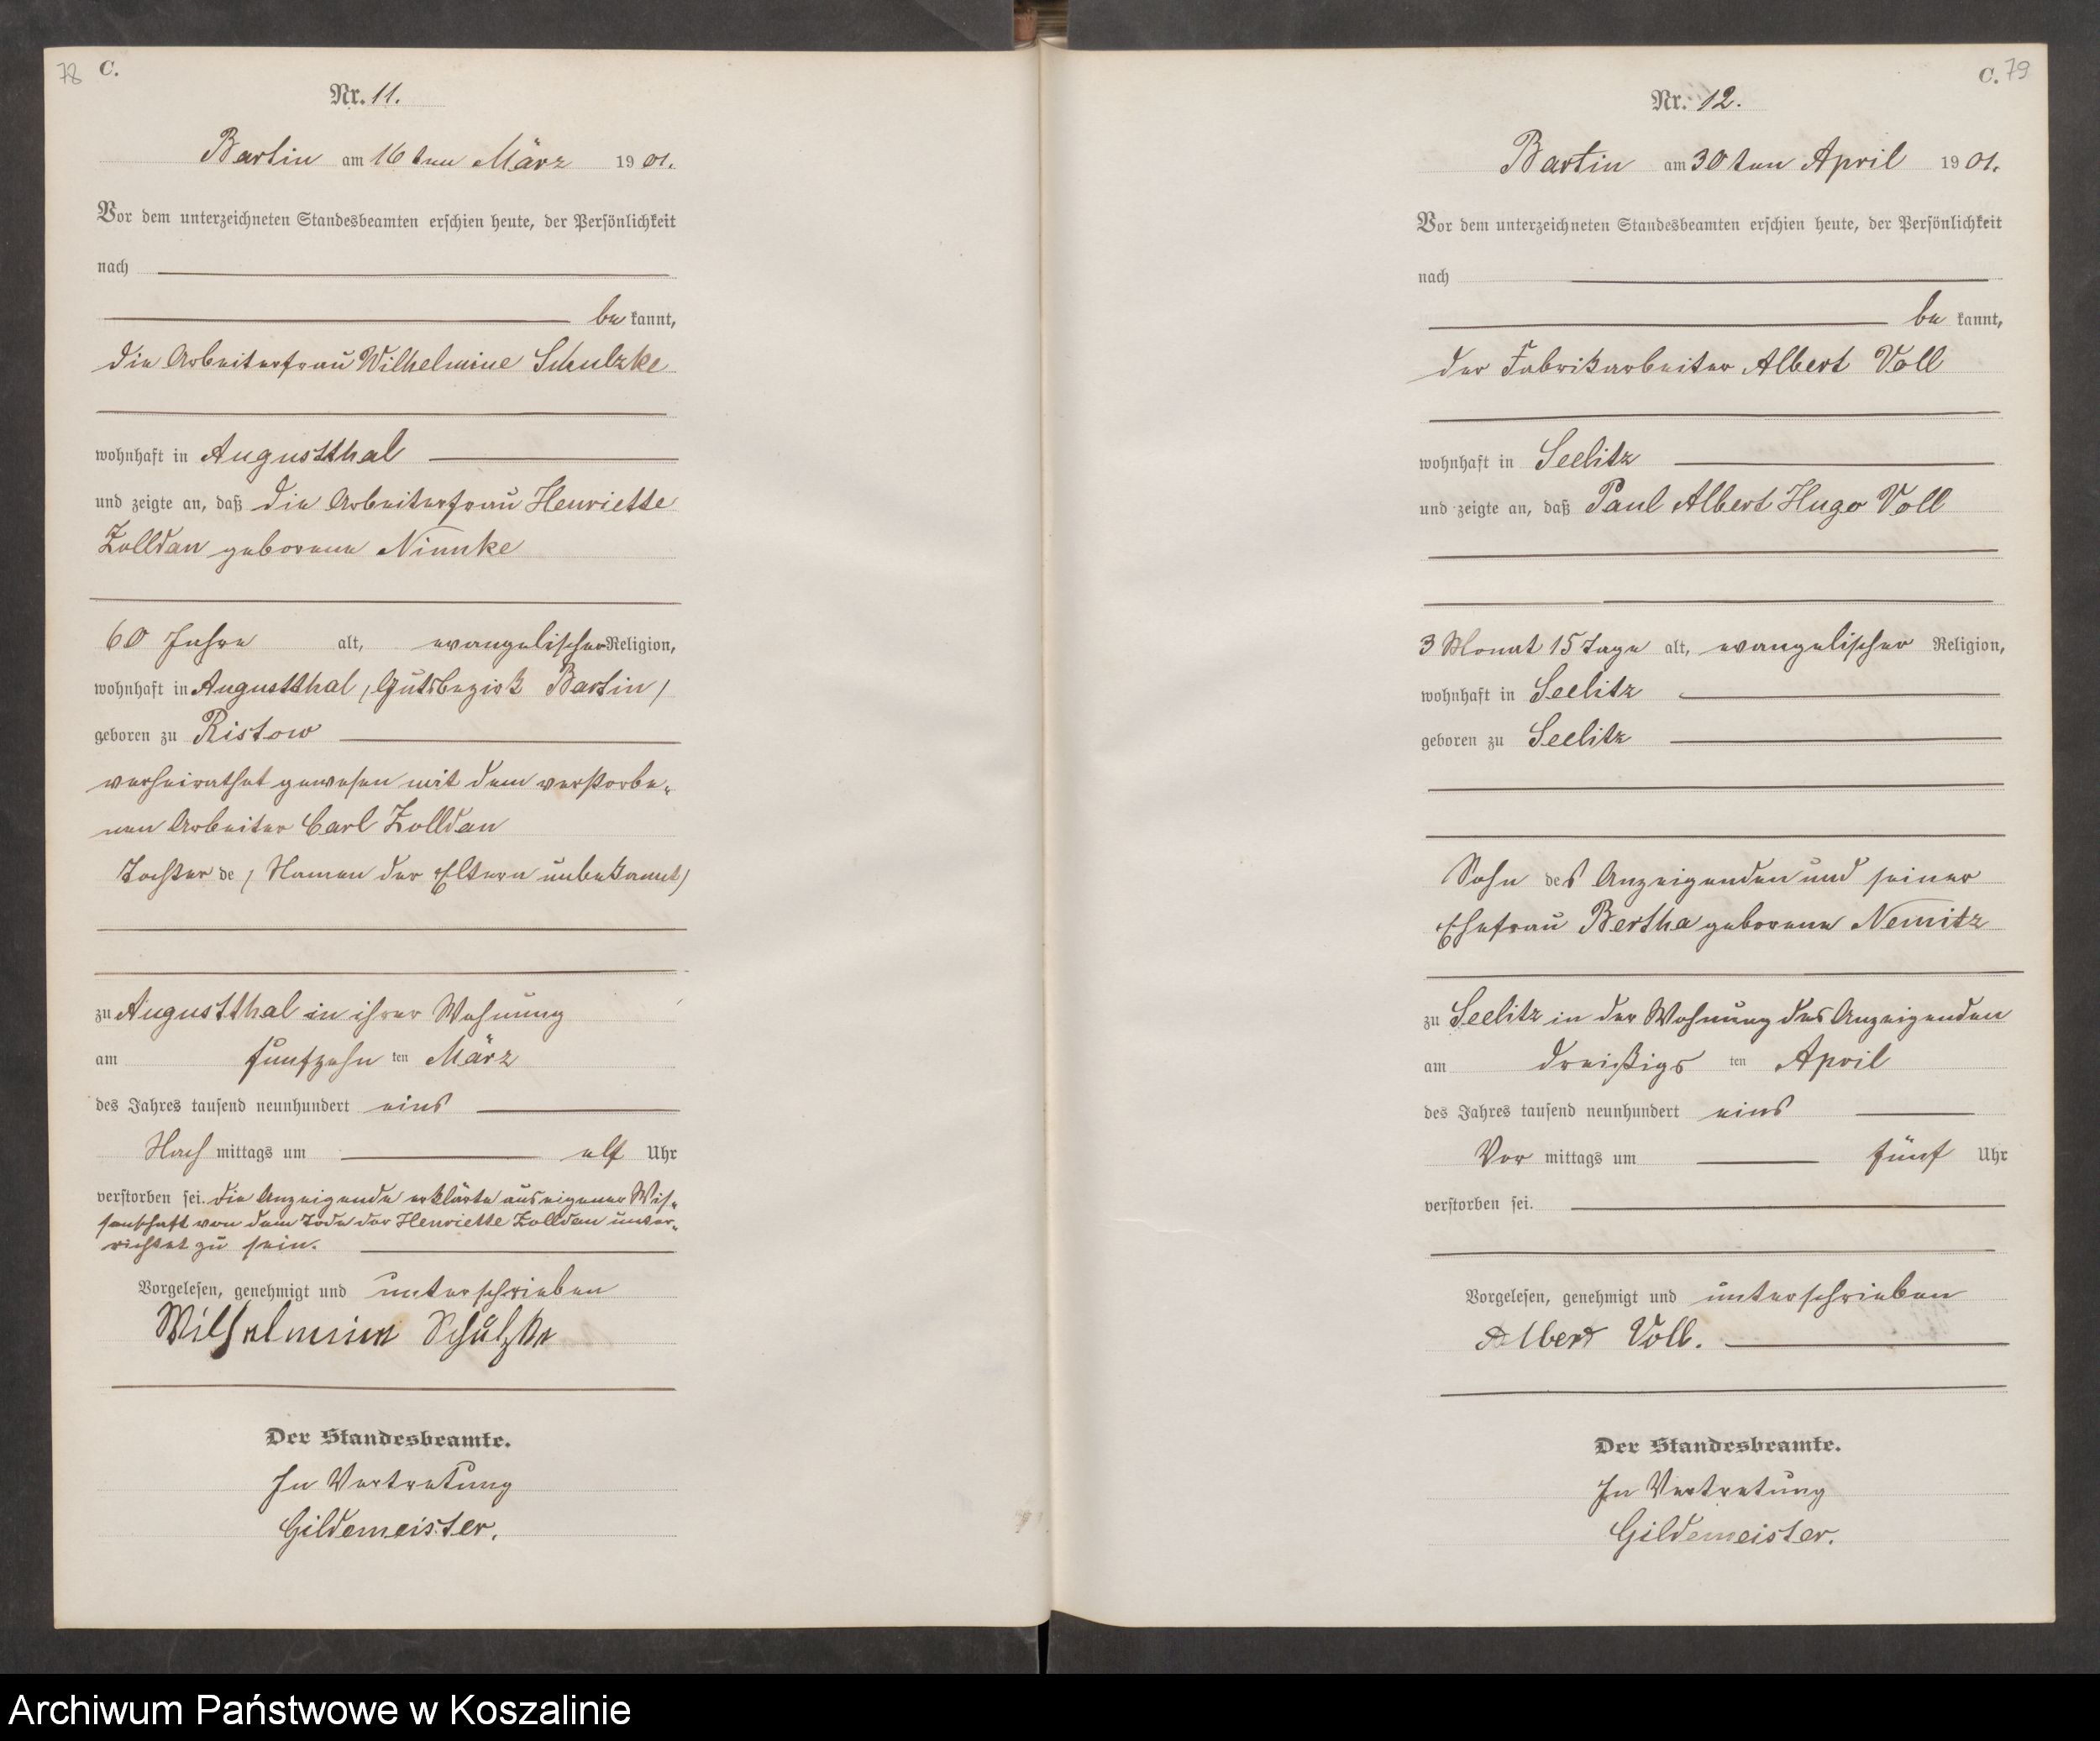 78 C.
Nr. 11.
Bartin am 16ten März 1901.
Vor dem unterzeichneten Standesbeamten erschien heute, der Persönlichkeit
nach
be kannt,
die Arbeiterfrau Wilhelmine Schulzke
wohnhaft in Augustthal
und zeigte an, daß die Arbeiterfrau Henriette
Zolldan geborene Nimke
60 Jahre alt, evangelischer Religion,
wohnhaft in Augustthal (Gutsbezirk Bartin)
geboren zu Ristow
verheirathet gewesen mit dem verstorbe-
nen Arbeiter Carl Zolldan
Tochter de (Namen der Eltern unbekannt)
zu Augustthal in ihrer Wohnung
am fünfzehn ten März
des Jahres tausend neunhundert eins
Nach mittags um elf Uhr
verstorben sei. Die Anzeigende erklärte aus eigener Wis-
senschaft von dem Tode der Henriette Zolldan unter-
richtet zu sein.
Vorgelesen, genehmigt und unterschrieben
Wilhelmine Schulzke
Der Standesbeamte.
In Vertretung
Gildemeister.
C. 79
Nr. 12.
Bartin am 30ten April 1901.
Vor dem unterzeichneten Standesbeamten erschien heute, der Persönlichkeit
nach
be kannt,
der Fabrikarbeiter Albert Voll
wohnhaft in Seelitz
und zeigte an, daß Paul Albert Hugo Voll
3 Monat 15 Tage alt, evangelischer Religion,
wohnhaft in Seelitz
geboren zu Seelitz
Sohn des Anzeigenden und seiner
Ehefrau Bertha geborene Nemitz
zu Seelitz in der Wohnung des Anzeigenden
am dreißigs ten April
des Jahres tausend neunhundert eins
Vor mittags um fünf Uhr
verstorben sei.
Vorgelesen, genehmigt und unterschrieben
Albert Voll.
Der Standesbeamte.
In Vertretung
Gildemeister.
Archiwum Państwowe w Koszalinie